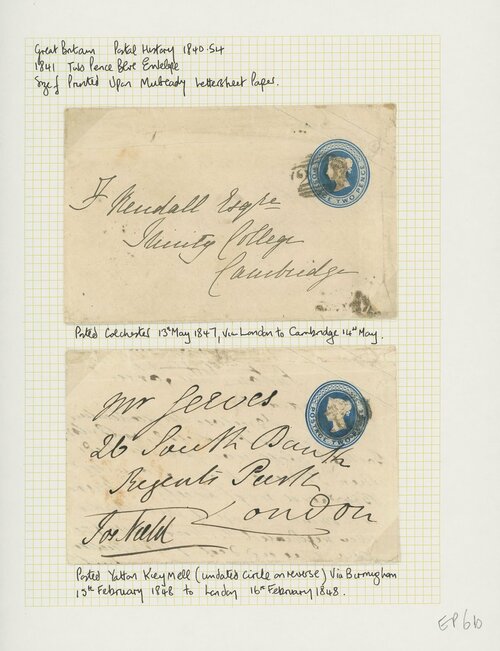 Great Britain Postal History 1840-54
1841 Two Pence Blue Envelope
Size f Printed Upon Mulready Lettersheet Paper.
POSTAGE TWO PENCE
F Kendall Esqre
Trinity College
Cambridge
Posted Colchester 13th May 1847, via London to Cambridge 14th May.
POSTAGE TWO PENCE
Mr Jeeves
26 South Bank
Regents Park
London
Jos Neeld
Posted Yatton Keynell (undated Circle on reverse) Via Birmigham
15th February 1848 to London 16th February 1848.
EP6b